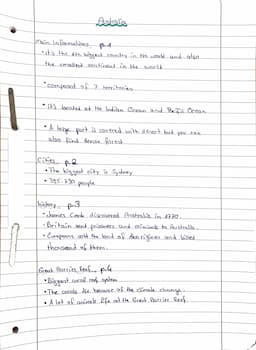 Australia
Main Informations p.1
• it's the 6th biggest country in the world and also
the smallest continent in the world
• composed of 7 territories
• it's located at the Indian Ocean and Pacific Ocean
• A large part is covered with desert but you can
also find dense forest
Cities p.2
• The biggest city is Sydney
people
history p.3
• James Cook discovered Australia in 1770.
• Britain send prisoners and criminals to Australia.
• Europeans took the land of Aborigines and killed
thousand of them.
Great Barrier Reef p.4
• Biggest coral reef system
• The corals die because of the climate change.
• A lot of animals life at the Great Barrier Reef.